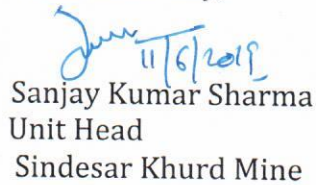 11/6/2019
Sanjay Kumar Sharma
Unit Head
Sindesar Khurd Mine